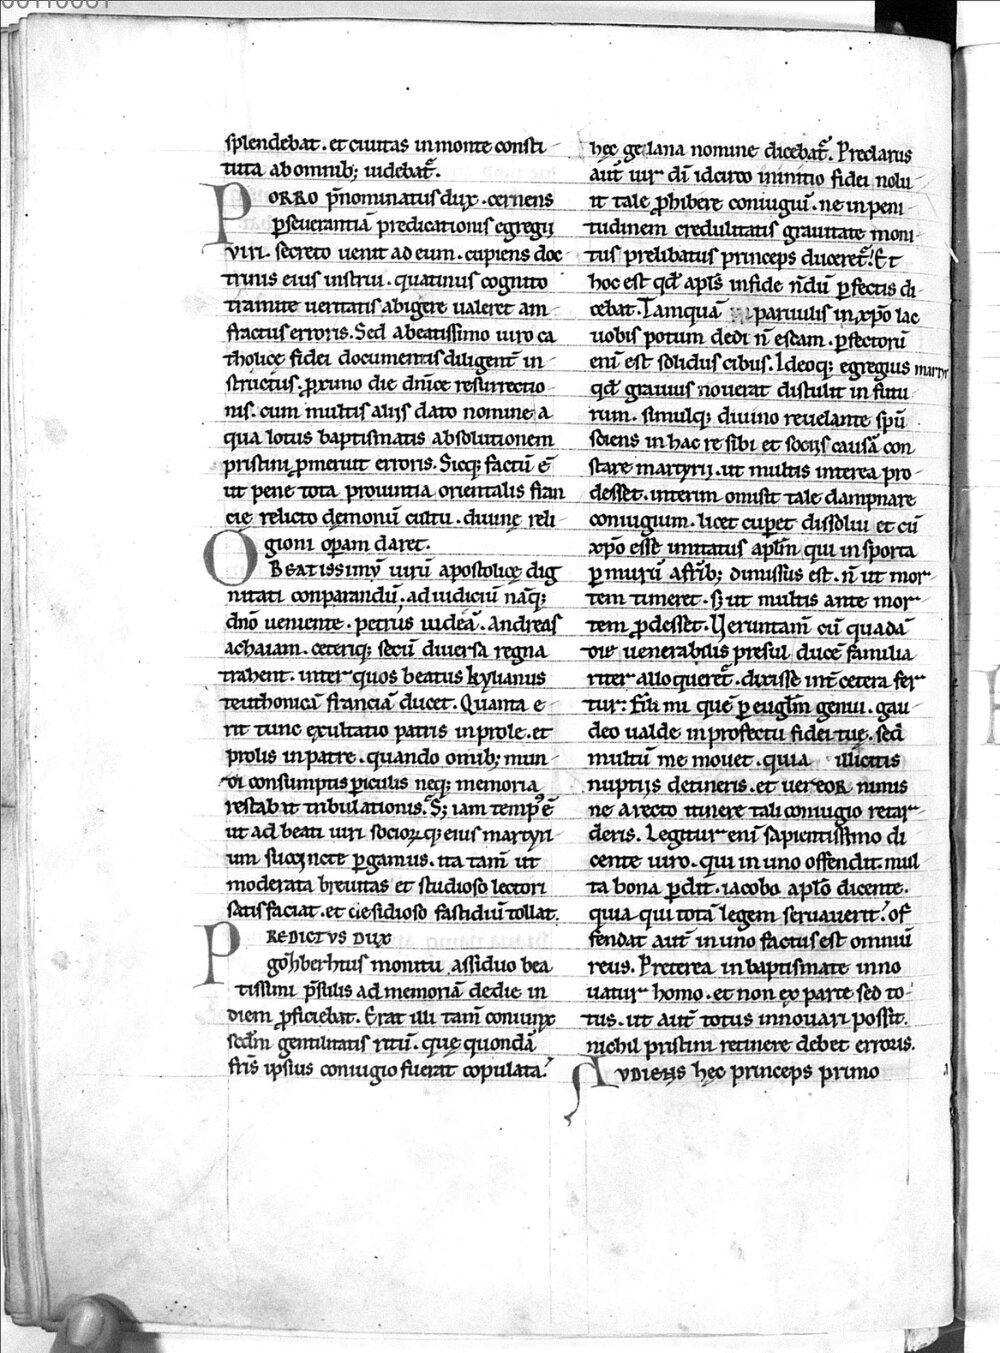 splendebat. et ciuitas in monte consti-
tuta ab omnib; uidebat᷑.
PORRO p̄nominatus dux. cernens
p̱seuerantiā predicationis egregii
viri. secreto uenit ad eum. cupiens doc-
trinis eius instrui. quatinus cognito
tramite ueritatis abigere ualeret am-
fractus erroris. Sed a beatissimo uiro ca
tholicę fidei documentis diligent̄ in-
structus. p̱ximo die dn̄icę resurrectio-
nis. cum multis aliis dato nomine a
qua lotus baptismatis absolutionem
pristini p̱meruit erroris. Sicq; factū ē
ut pene tota prouintia orientalis fran
cie relicto demonū cultu. diuinę reli-
gioni op̱am daret.
O BEATISSIMV̄ uirū apostolicę dig
nitati conparandū. ad iudiciū nāq;
dn̄o ueniente. petrus iudeā. Andreas
achaiam. ceteriq; secū diuersa regna
trahent. inter quos beatus kylianus
teuthonicā franciā ducet. Quanta e-
rit tunc exultatio patris in prole. et
prolis in patre. quando omib; mun-
di consumptis p̱iculis neq; memoria
restabit tribulationis. S; iam temp⁹ ē
ut ad beati uiri socioꝝq; eius martyri-
um succincte p̱gamus. ita tam̄ ut
moderata breuitas et studioso lectori
satisfaciat. et desidioso fastidiū tollat.
PREDICTVS DVX
gozberhtus monitu assiduo bea
tissimi p̄sulis ad memoriā dedie in
diem p̱ficiebat. Erat illi tam̄ coniunx
scd̄m gentilitatis ritū. quę quondā
fr̄is ipsius coniugio fuerat copulata.
hęc geilana nomine dicebat᷑. Preclarus
aut̄ uir dī idcirco in initio fidei nolu-
it tale p̱hibere coniugiū. ne in peni-
tudinem credulitatis grauitate moni-
tus prelibatus princeps duceret᷑. Et
hoc est qd̄ apl̄s in fide n̄dū p̱fectis di-
cebat. Tamquā paruulis in xp̄o lac
uobis potum dedi n̄ escam. p̱fectorū
enī est solidus cibus. Ideoq; egregius martyr
qd̄ grauius nouerat distulit in futu
rum. simulq; diuino reuelante sp̄u
sciens in hac re sibi et sociis causā con
stare martyrii. ut multis interea pro-
desset. interim omisit tale dampnare
coniugium. licet cup̱et dissolui et cū
xp̄o esse. imitatus apl̄m qui in sporta
p̱ murū a fr̄ib; dimissus est. n̄ ut mor-
tem timeret. s; ut multis ante mor-
tem p̱desset. Ueruntam̄ cū quadā
die uenerabilis presul ducē familia
riter alloqueret᷑. dixisse int̄ cetera fer-
tur: Fili mi quē p̱ eugl̄m genui. gau-
deo ualde in profectu fidei tuę. sed
multū me mouet. quia illicitis
nuptiis detineris. et uereor nimis
ne a recto itinere tali coniugio retar-
deris. Legitur enī sapientissimo di
cente uiro. qui in uno offendit. mul
ta bona p̱dit. iacobo apl̄o dicente.
quia qui totā legem seruauerit. of
fendat aut̄ in uno factus est omniū
reus. Preterea in baptismate inno
uatur homo. et non ex parte sed to-
tus. ut aut̄ totus innouari possit.
nichil pristini retinere debet erroris.
AVDIENS hęc princeps primo